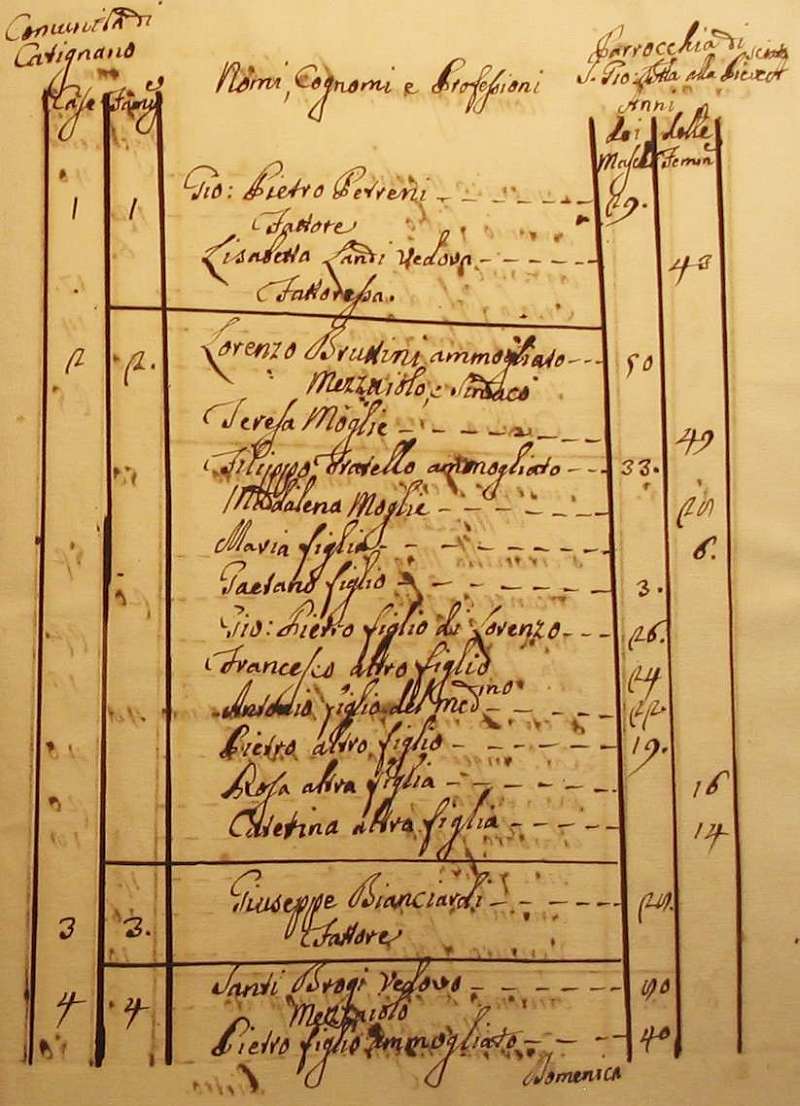 Comunità di
Catignano
Parrocchia di
S. Gio: alla
Nomi, Cognomi e Professioni
Anni
Case Famie
dei delle
Maschi Femine
1 1 Gio: Pietro Perreni 29.
Fattore
Lisabetta Landi Vedova 43
Fattoressa.
2 2. Lorenzo Bruttini ammogliato 50
Mezzaiolo, e Sindaco
Teresa Moglie 49
Filippo fratello ammogliato 33.
Maddalena Moglie
Maria figlia 6.
Gaetano figlio 3.
Gio: Pietro figlio di Lorenzo 26.
Francesco altro figlio 24
Antonio figlio del Medmo 22.
Pietro altro figlio 19.
Rosa altra figlia 16
Caterina altra figlia 14
3 3. Giuseppe Bianciardi
Fattore
4 4 Santi Brogi Vedovo
Mezzaiolo
Pietro figlio ammogliato 40
Domenica